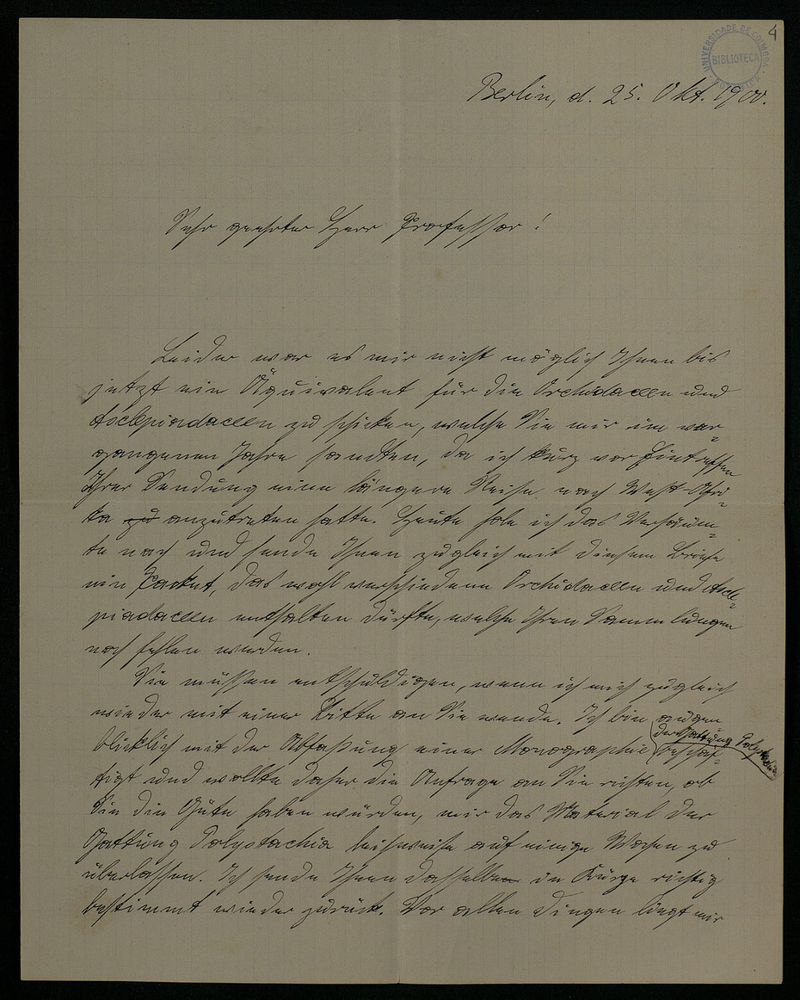 4
UNIVERSIDADE DE COIMBRA
BIBLIOTECA
BOTANICA
Berlin, d. 25. Okt. 1900.
Sehr geehrter Herr Professor!
Leider war es mir nicht möglich Ihnen bis
jetzt ein Äquivalent für die Orchidaceen und
Asclepiadaceen zu schicken, welche Sie mir im ver-
gangenen Jahre sandten, da ich kurz vor Eintreffen
Ihrer Sendung eine längere Reise nach West-Afri-
ka zu anzutreten hatte. Heute hole ich das Versäum-
te nach und sende Ihnen zugleich mit diesem Briefe
ein Packet, das wohl verschiedene Orchidaceen und Ascle-
piadaceen enthalten dürfte, welche Ihren Sammlungen
noch fehlen werden.
Sie müssen entschuldigen, wenn ich mich zugleich
wieder mit einer Bitte an Sie wende. Ich bin augen
blicklich mit der Abfassung einer Monographie der Gattung Polystachia beschäf-
tigt und wollte daher die Anfrage an Sie richten, ob
Sie die Güte haben würden, mir das Material der
Gattung Polystachia leihweise auf einige Wochen zu
überlassen. Ich sende Ihnen dasselbe in Kürze richtig
bestimmt wieder zurück. Vor allen Dingen liegt mir